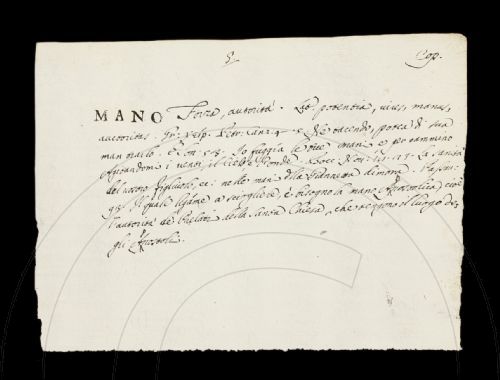 8
Cop.
MANO Forza, autorità. Lat. potentia, vires, manus,
auctoritas. Petr. canz. 4. e tacendo, potea di sua
man trarlo. E son. 58. Io fuggia le tue mani e per cammino
Agitandom' i venti, il cielo e l'onde. Bocc. Nov. La sanità
del vostro figliuolo, nelle man dimora.
Il quale legame a sciogliere, è bisogno la mano Apostolica, cioè
l'autorità de' Prelati della Santa Chiesa, che tengono il luogo de-
gli Apostoli.